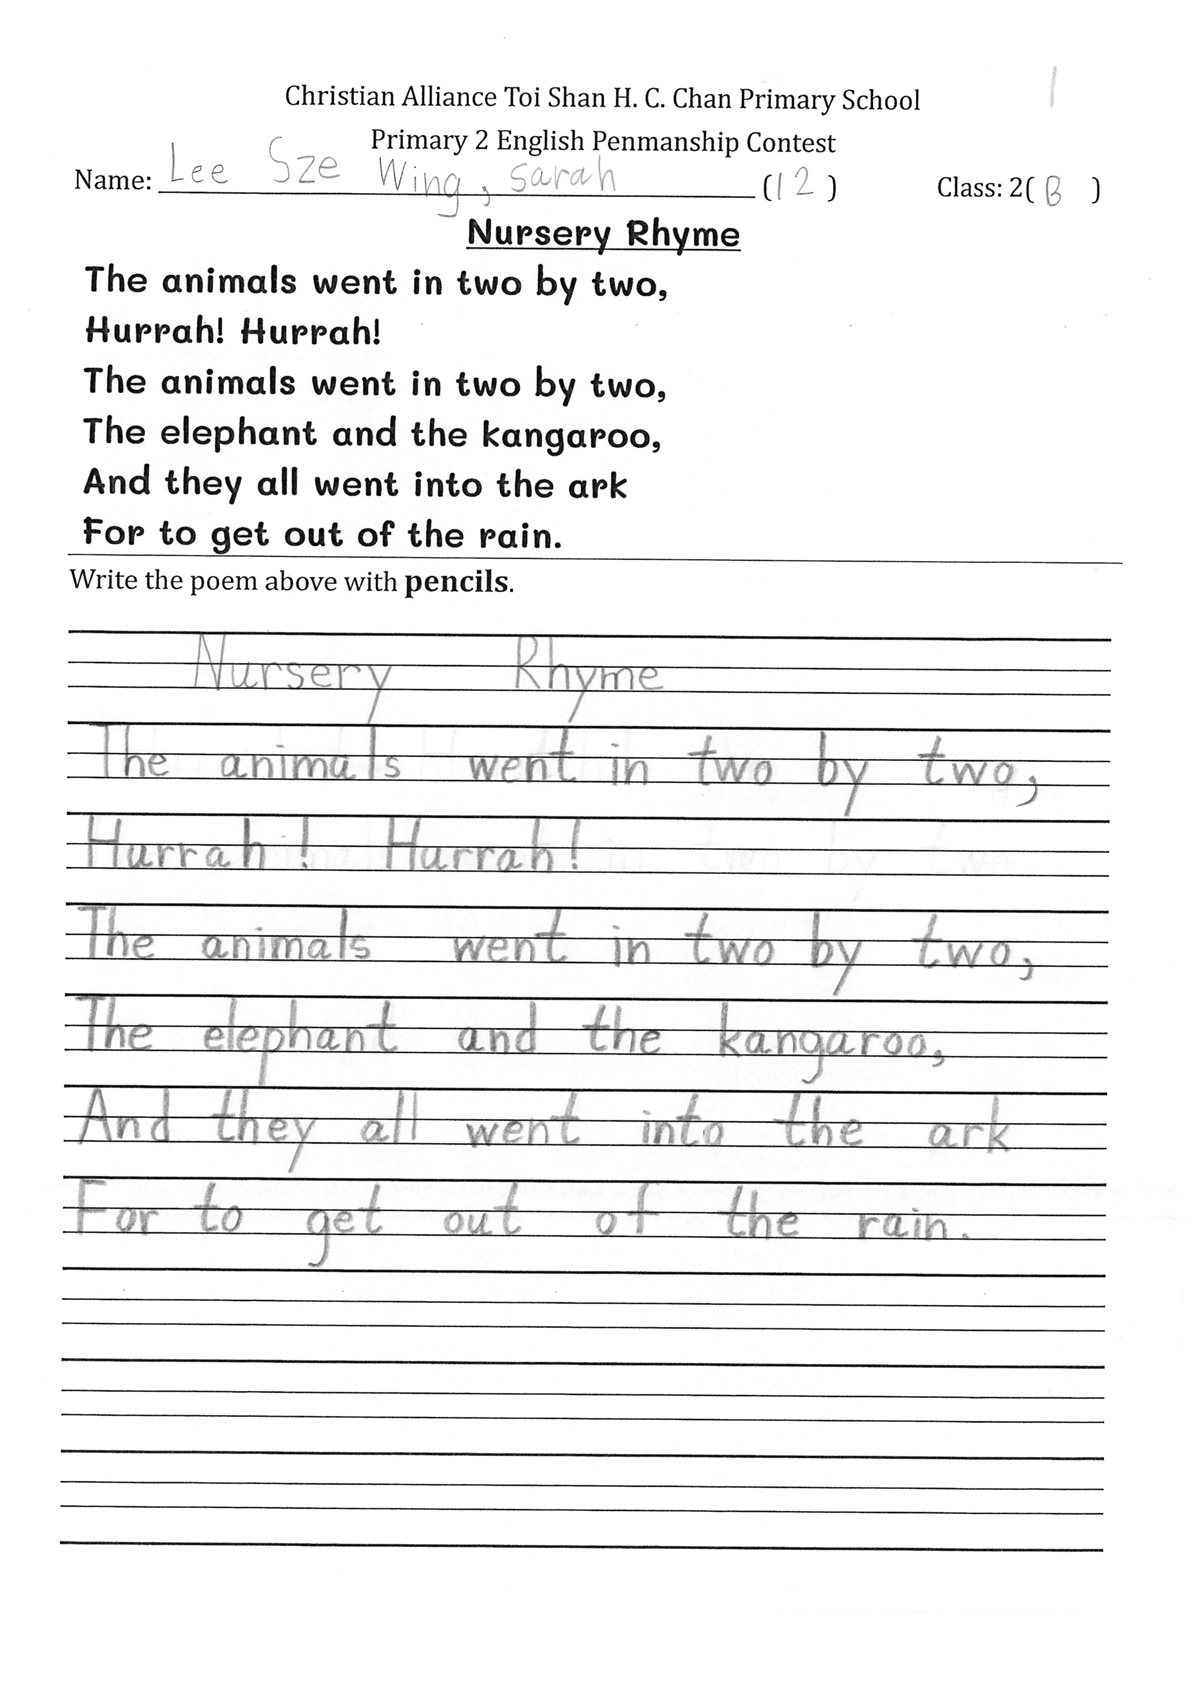 1
Christian Alliance Toi Shan H. C. Chan Primary School
Primary 2 English Penmanship Contest
Name: Lee Sze Wing, sarah (12) Class: 2(B)
Nursery Rhyme
The animals went in two by two,
Hurrah! Hurrah!
The animals went in two by two,
The elephant and the kangaroo,
And they all went into the ark
For to get out of the rain.
Write the poem above with pencils.
Nursery Rhyme
The animals went in two by two,
Hurrah! Hurrah!
The animals went in two by two,
The elephant and the kangaroo,
And they all went into the ark
For to get out of the rain.